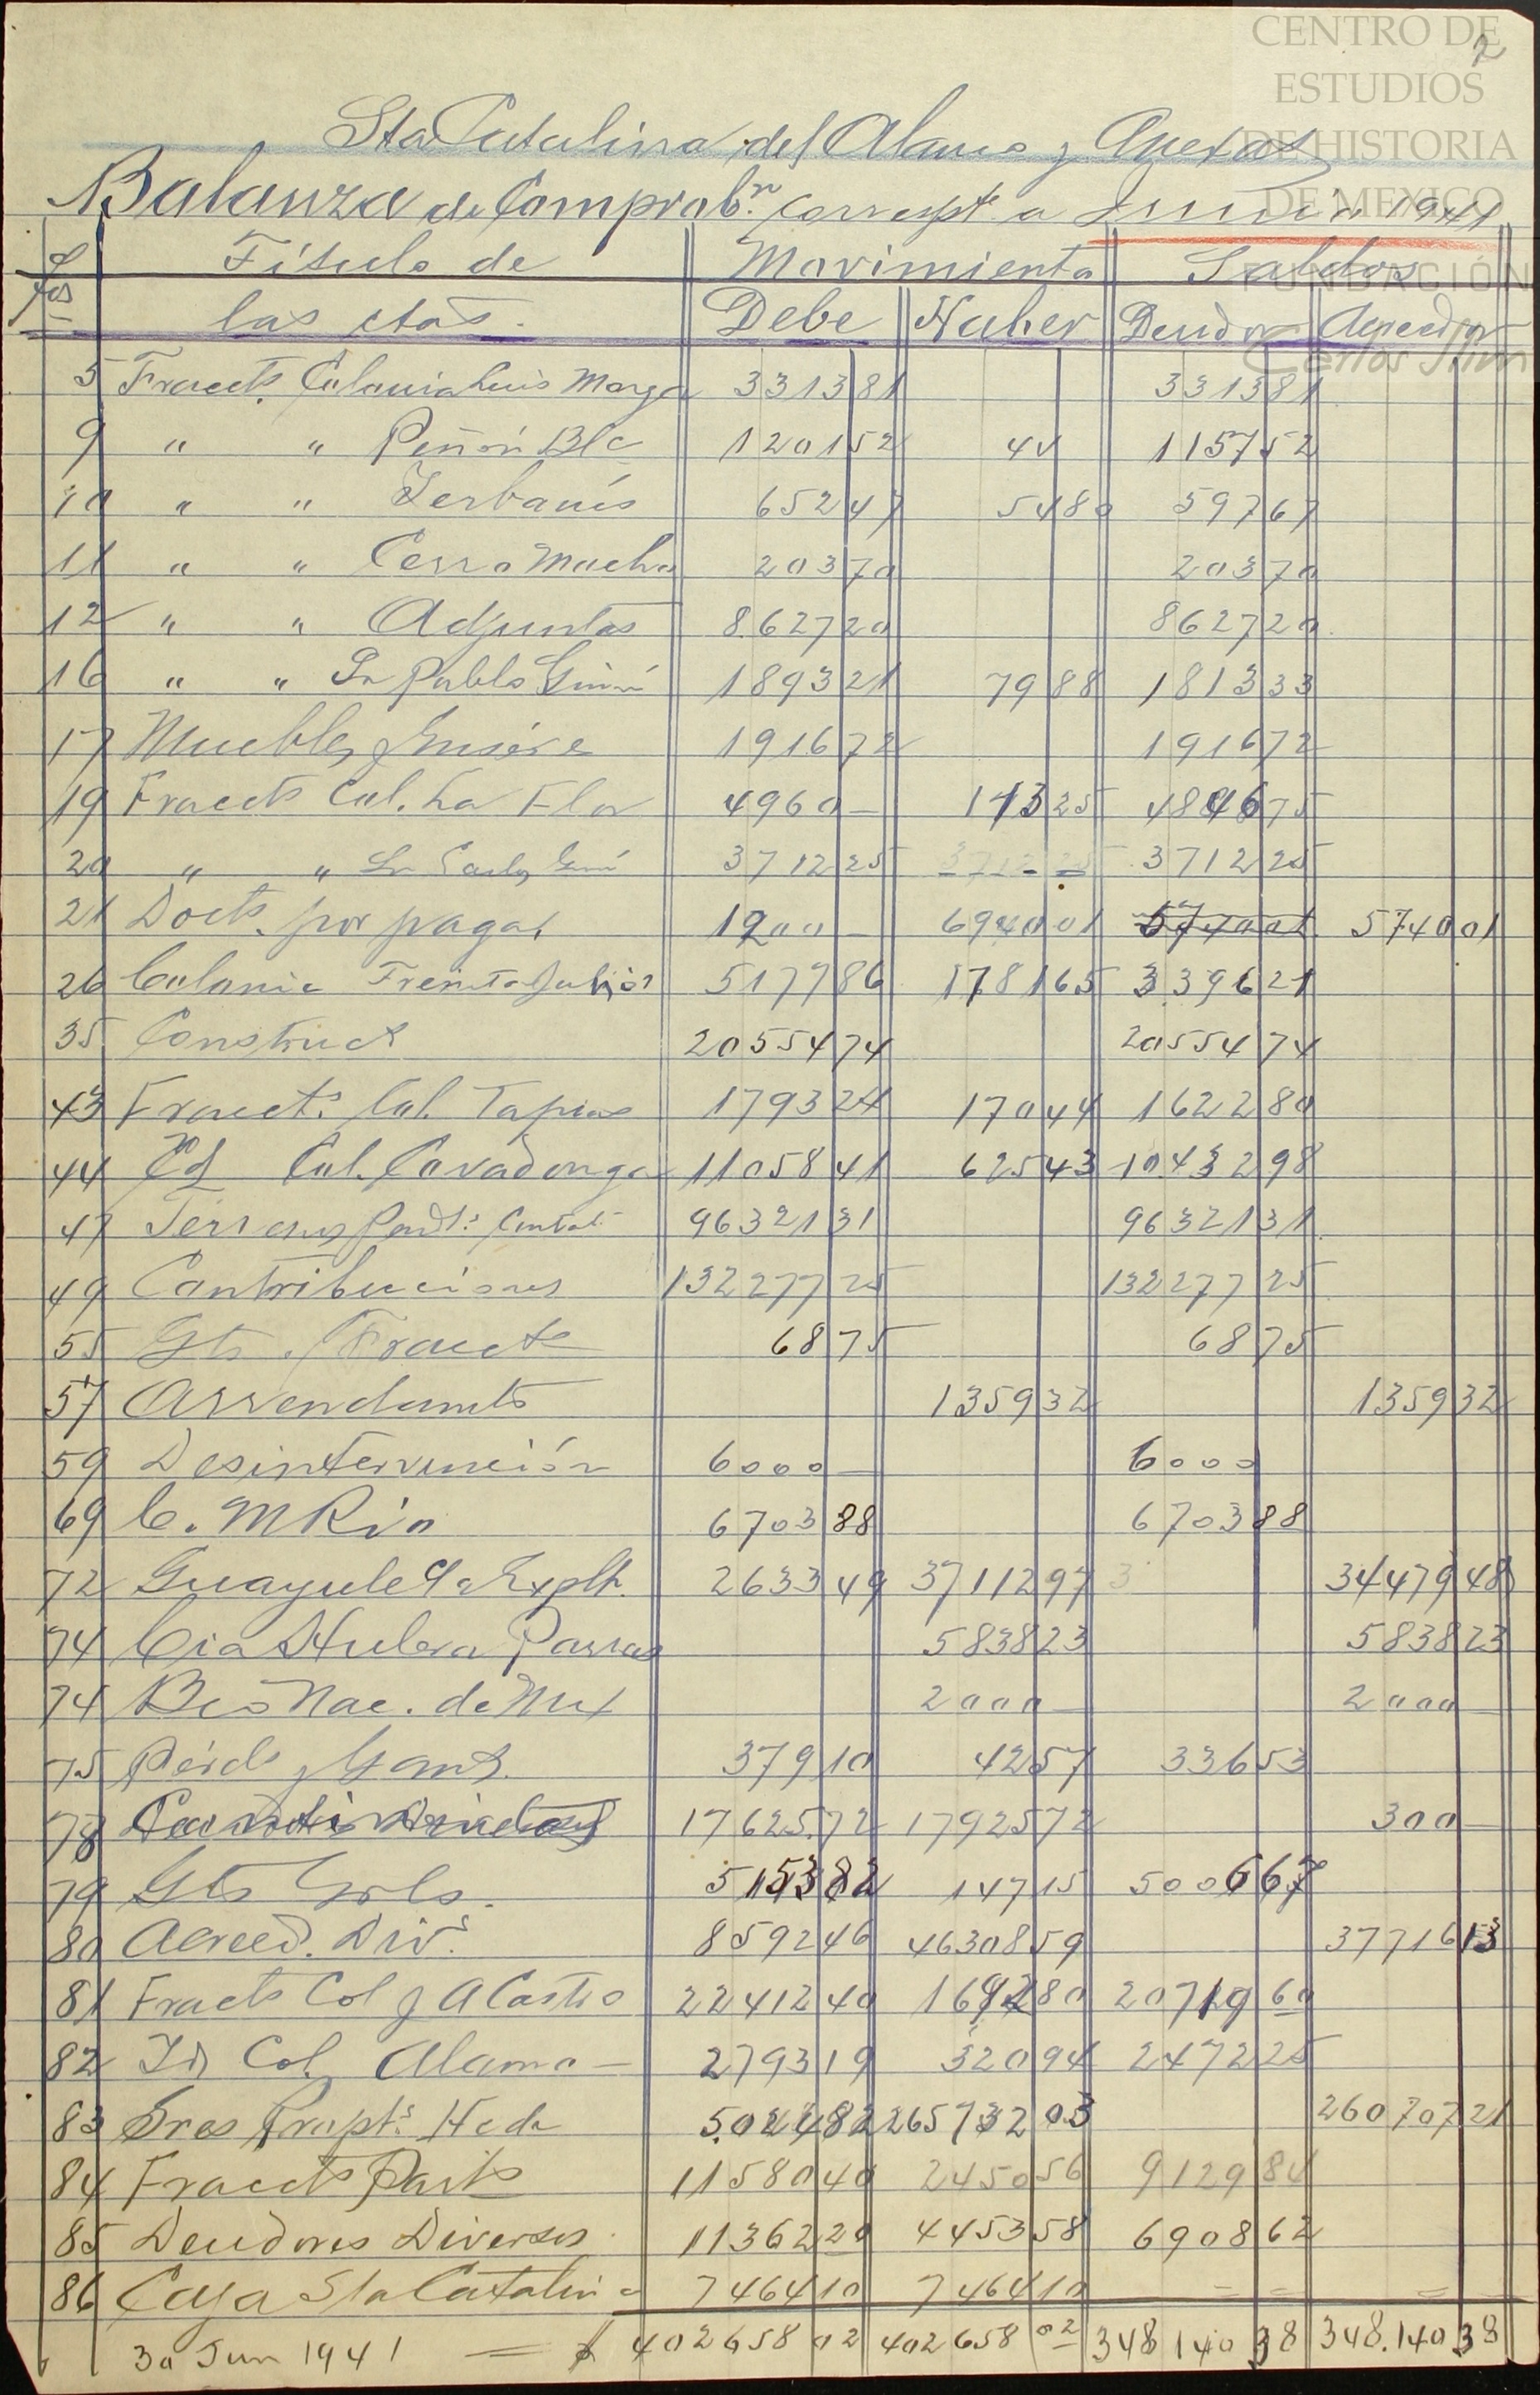 CENTRO DE
ESTUDIOS
DE HISTORIA
DE MEXICO
FUNDACIÓN
Carlos Slim
2
Sta Catalina del Alamo y Anexas
Balanza de Comprobn. correspte a Junio 1941
Fos Título de Movimiento Saldos
las ctas. Debe Haber Deudor Acreedor
5 Fracct. Colonia Luis Moya 3313 81 3313 81
9 " " Peñón Blco 1201 52 44 1157 52
10 " " Yerbanís 652 47 54 80 597 67
11 " " Cerro Macho 203 70 203 70
12 " " Adjuntas 8627 20 8627 20
16 " " Sn Pablo 1893 21 79 88 1813 33
17 Muebles y 1916 72 1916 72
19 Fraccts Col. La Flor 4960 — 113 25 4846 75
20 " " Sn 3712 25 3712 25
21 Docts. por pagar 1200 — 6940 01 5740 01 5740 01
26 Colonia 5177 86 1781 65 3396 21
35 Construct 20554 74 20554 74
43 Fracct. Col. Tapias 1793 24 170 44 1622 80
44 Id Col. Covadonga 11058 41 625 43 10432 98
47 Terrenos 96321 31 96321 31
49 Contribuciones 132277 25 132277 25
55 Gts. Fracct 68 75 68 75
57 Arrendamts 1359 32 1359 32
59 Desintervención 6000 — 6000
69 C. M Rio 6703 88 6703 88
72 Guayule Cta Explt. 2633 49 37112 97 3 34479 48
74 Cia Hulera Parras 5838 23 5838 23
74 Bco Nac. de Mex 2000 — 2000 —
75 Pérds y Gans. 379 10 42 57 336 53
78 17625.72 17925 72 300 —
79 Gts Grls. 5153 82 147 15 5006 67
80 Acreed. Div. 8592 46 46308 59 37716 13
81 Fracts Col J A Castro 22412 40 1692 80 20719 60
82 Id Col. Alamo — 2793 19 320 94 2472 25
83 Sres Propts. Hcda 5024 82 265732 03 260707 21
84 Fraccts Parts 11580 40 2450 56 9129 84
85 Deudores Diversos 11362 20 4453 58 6908 62
86 Caja Sta Catalina 7464 10 7464 10 — = = = —
30 Jun 1941 = $ 402658 02 402658 02 348 140 38 348.140 38